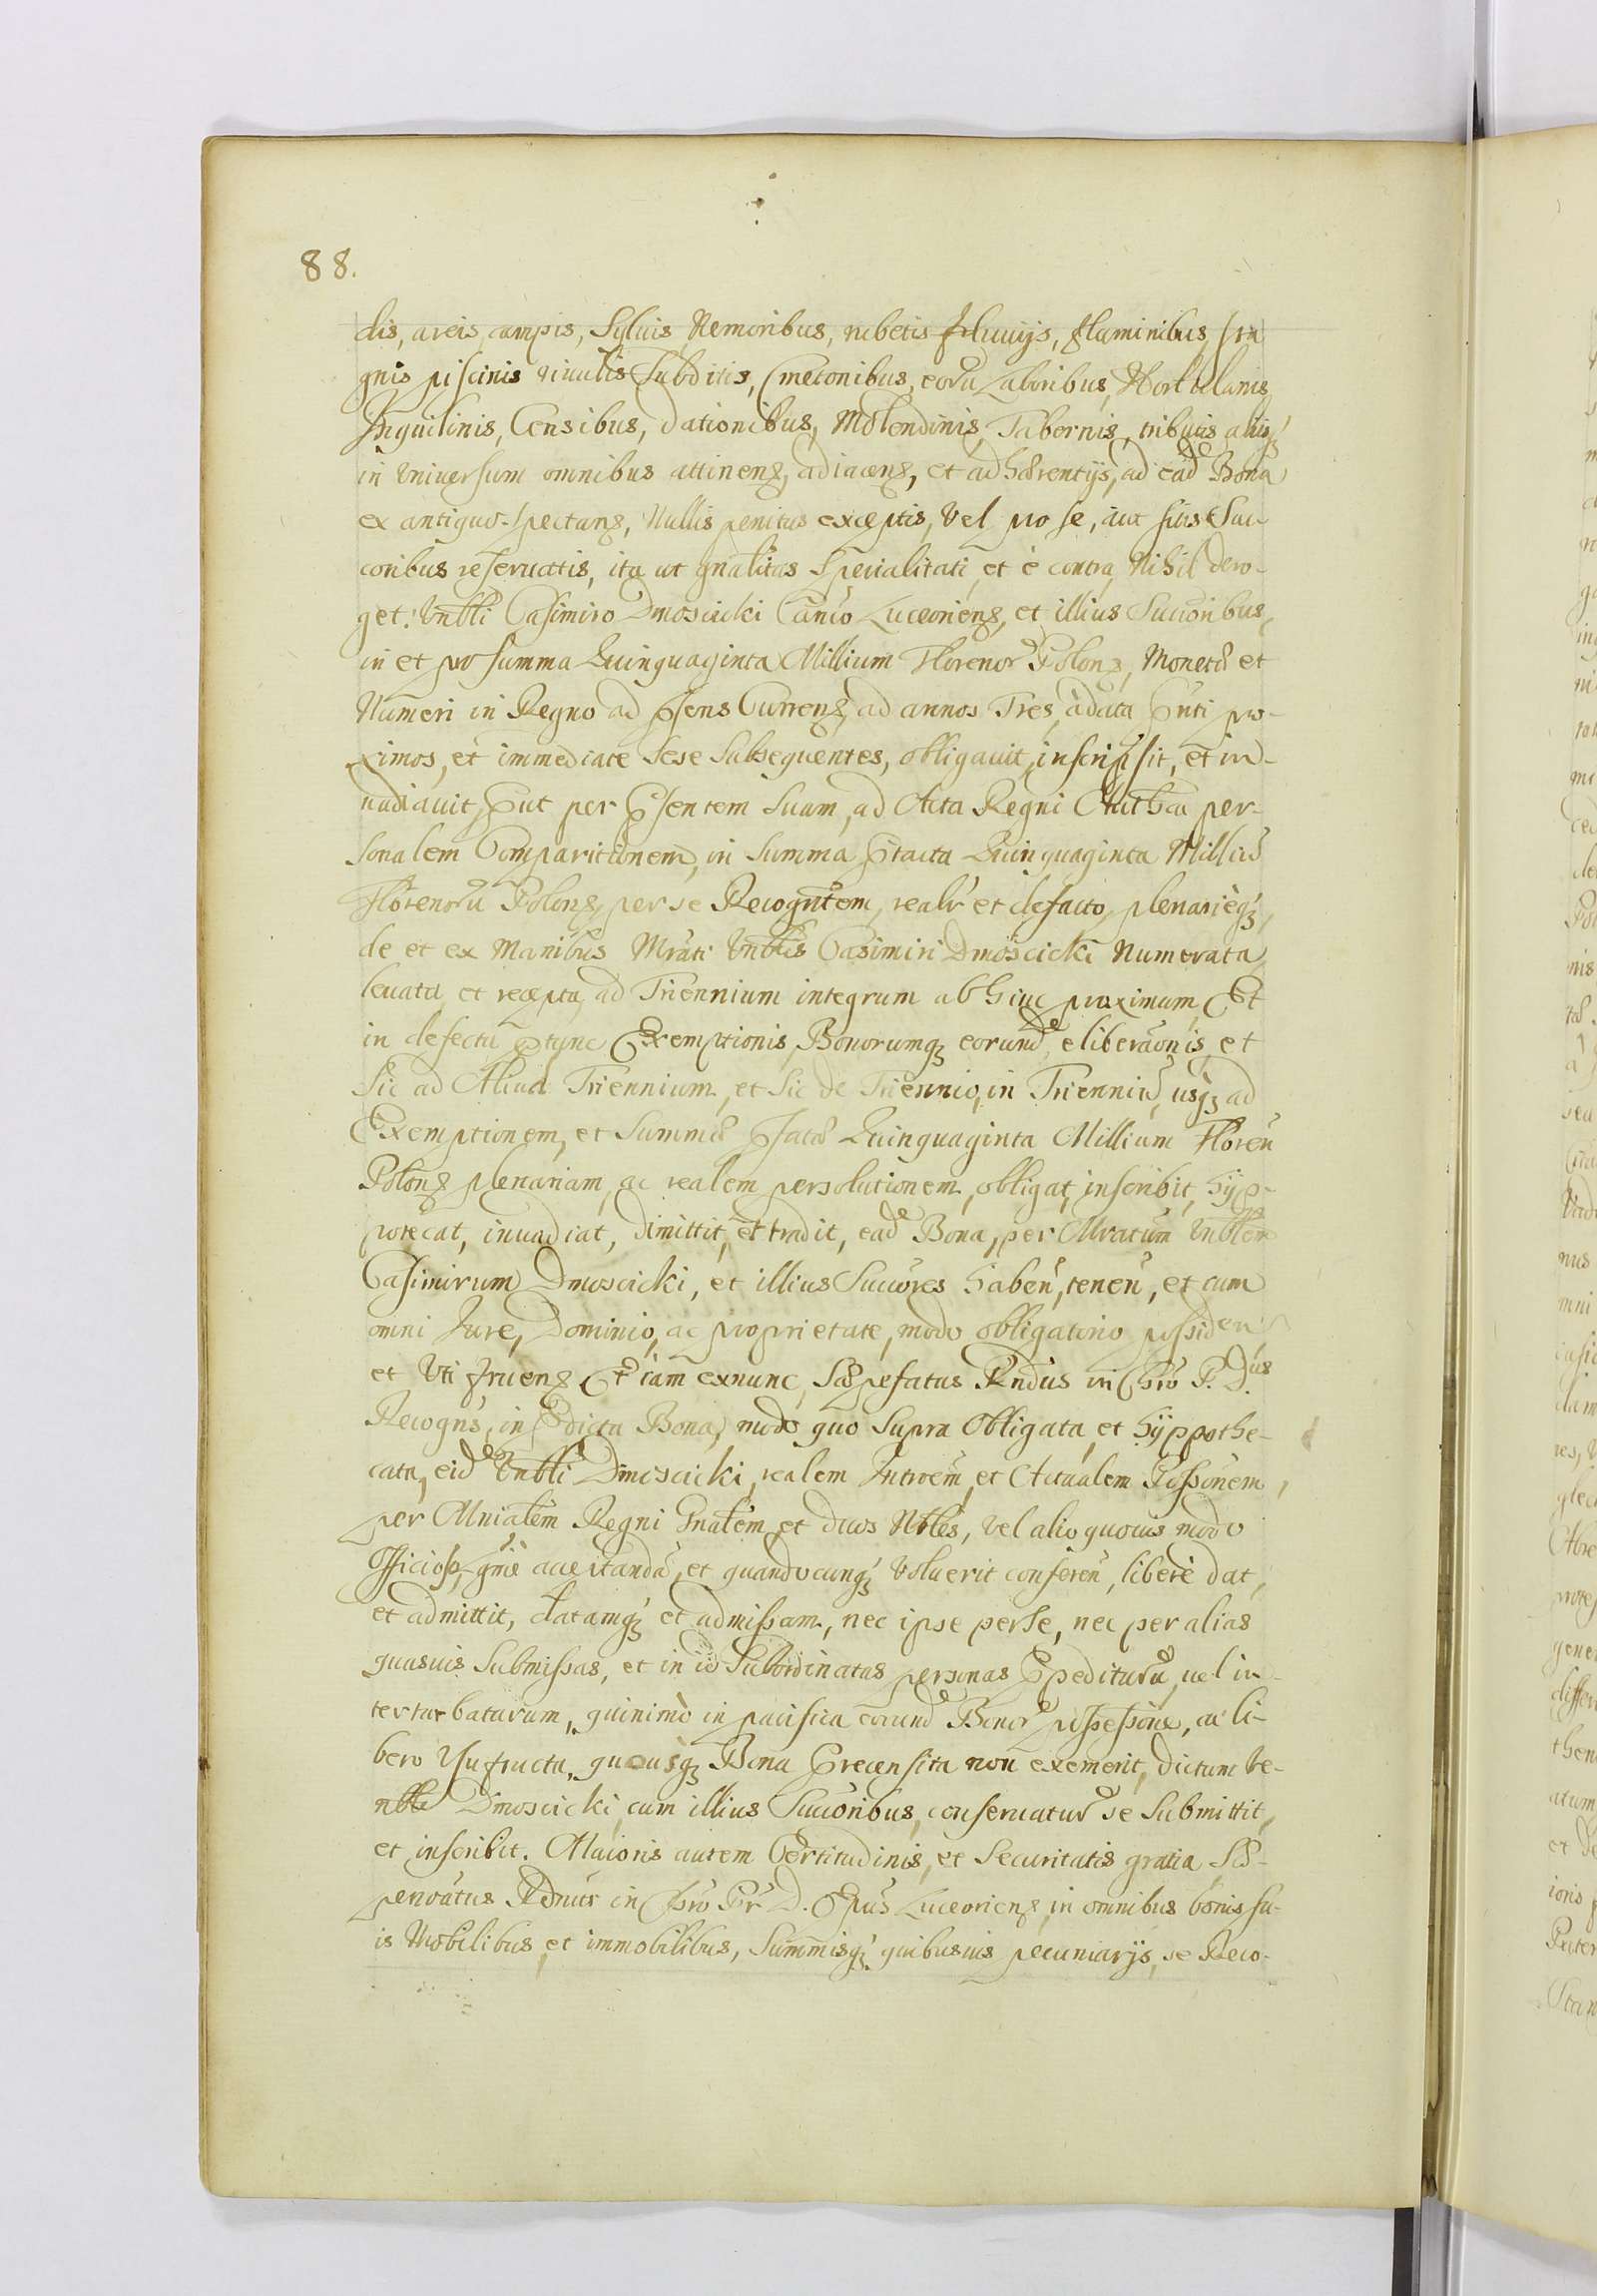 88.
dis, areis, campis, Syluis Nemoribus, rubetis fluuijs, fluminibus sta
gnis piscinis riuulis Subditis, Cmetonibus, eorũ Laboribus, Hortulanis
Inquilinis, Censibus, dationibus, Molendinis, Tabernis, tributis alijsq́ꝫ
in Vniuersum omnibus attinenꝫ, adiacenꝫ, et adhærentijs, ad eadẽ Bona
ex antiquo Spectanꝫ, Nullis penitus exceptis, Vel pro se, aut suis Suc
coribus reseruatis, ita ut gnalitas Specialitati et è contra Nihil dero-
get. Vnbli Casimiro Dmoscicki Canco Luceorienꝫ, et illius Succoribus,
in et pro summa Quinquaginta Millium Florenor̃ Polonꝫ, Monetæ et
Numeri in Regno ad p̃sens Currenꝫ, ad annos Tres, à data p̃nti pro-
ximos, et immediate Sese Subsequentes, obligauit, inscripsit, et in-
uadiauit, p̃ut per p̃sentem Suam, ad Acta Regni Authca per-
sonalem Comparitionem, in Summa p̃tacta Quinquaginta Milliũ
Florenorũ Polonꝫ, per se Recogntem, realr et defacto, plenarièq́ꝫ,
de et ex Manibus Mrati Vnblis Casimiri Dmoscicki Numerata
leuata et recepta, ad Triennium integrum abhinc proximum, Et
in defectu p̃tunc Exemptionis, Bonorumqꝫ eorund̃, eliberaonis, et
Sic ad Aliud Triennium, et Sic de Triennio, in Trienniũ, usqꝫ ad
Exemptionem, et Summæ p̃fatæ Quinquaginta Millium Floren̄
Polonꝫ plenariam, ac realem persolutionem, obligat, inscribit, hyp-
potecat, inuadiat, dimittit, et tradit, ead̃ Bona, per Mratum Vnblem
Casimirum Dmoscicki, et illius Succores haben̄, tenen̄, et cum
omni Iure, Dominio, ac proprietate, modo obligatorio possiden̄
et Vti fruenꝫ Et iam exnunc, Sæpefatus Rndus in Chro P. D.us
Recogns, in p̃dicta Bona, modo quo Supra Obligata, et hyppothe-
cata, eid̃ Vnbli Dmoscicki, realem Introem, et Actualem Possonem,
per Mnialem Regni Gnalem, et duos Nbles, Vel alio quouis modo
Officiose, gnie acceptandã, et quandocunqꝫ Voluerit conferen̄, liberè dat,
et admittit, datamqꝫ et admissam, nec ipse perse, nec per alias
quasuis Submissas, et in id Subordinatas personas p̃pediturũ, uel in-
terturbaturum, quinimò in pacifica eorund̃ Bonor̃ possessione, ac li-
bero Vsufructu, quousqꝫ Bona p̃recensita non exemerit, dictum Ve-
nble Dmoscicki, cum illius Succoribus, conseruatur̃ se Submittit,
et inscribit. Maioris autem Certitudinis, et Securitatis gratia Sæ-
peuoatus Rdnus in Chro Pr D. Eppus Luceorienꝫ in omnibus bonis su-
is Mobilibus, et immobilibus, Summisqꝫ quibusuis pecuniarijs, se Reco-